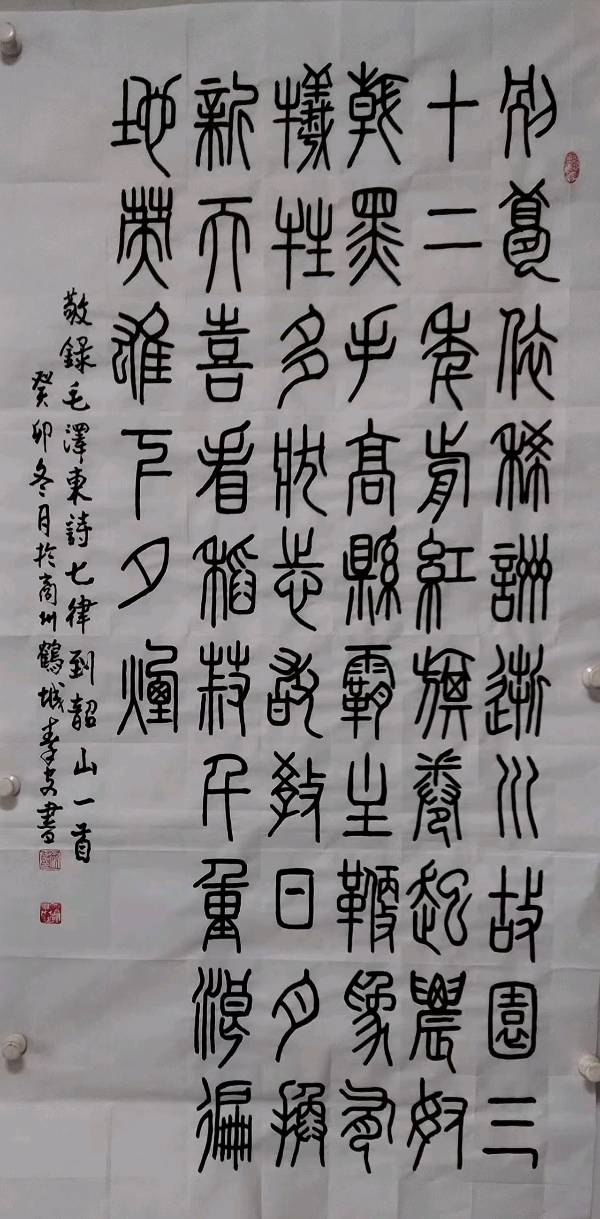 別夢依稀詶逝川故園三
十二年前紅旗卷起農奴
戟黑手高縣霸主鞭為有
犧牲多壯志敢教日月換
新天喜看稻菽千重浪徧
地英雄下夕煙
敬錄毛澤東詩七律到韶山一首
癸卯冬月於商州鶴城書